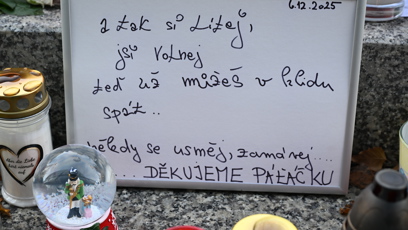 6.12.2025
a tak si lítej,
jsi volnej
teď už můžeš v klidu
spát..
někdy se usměj, zamávej....
.... DĚKUJEME PÁŤÁČKU